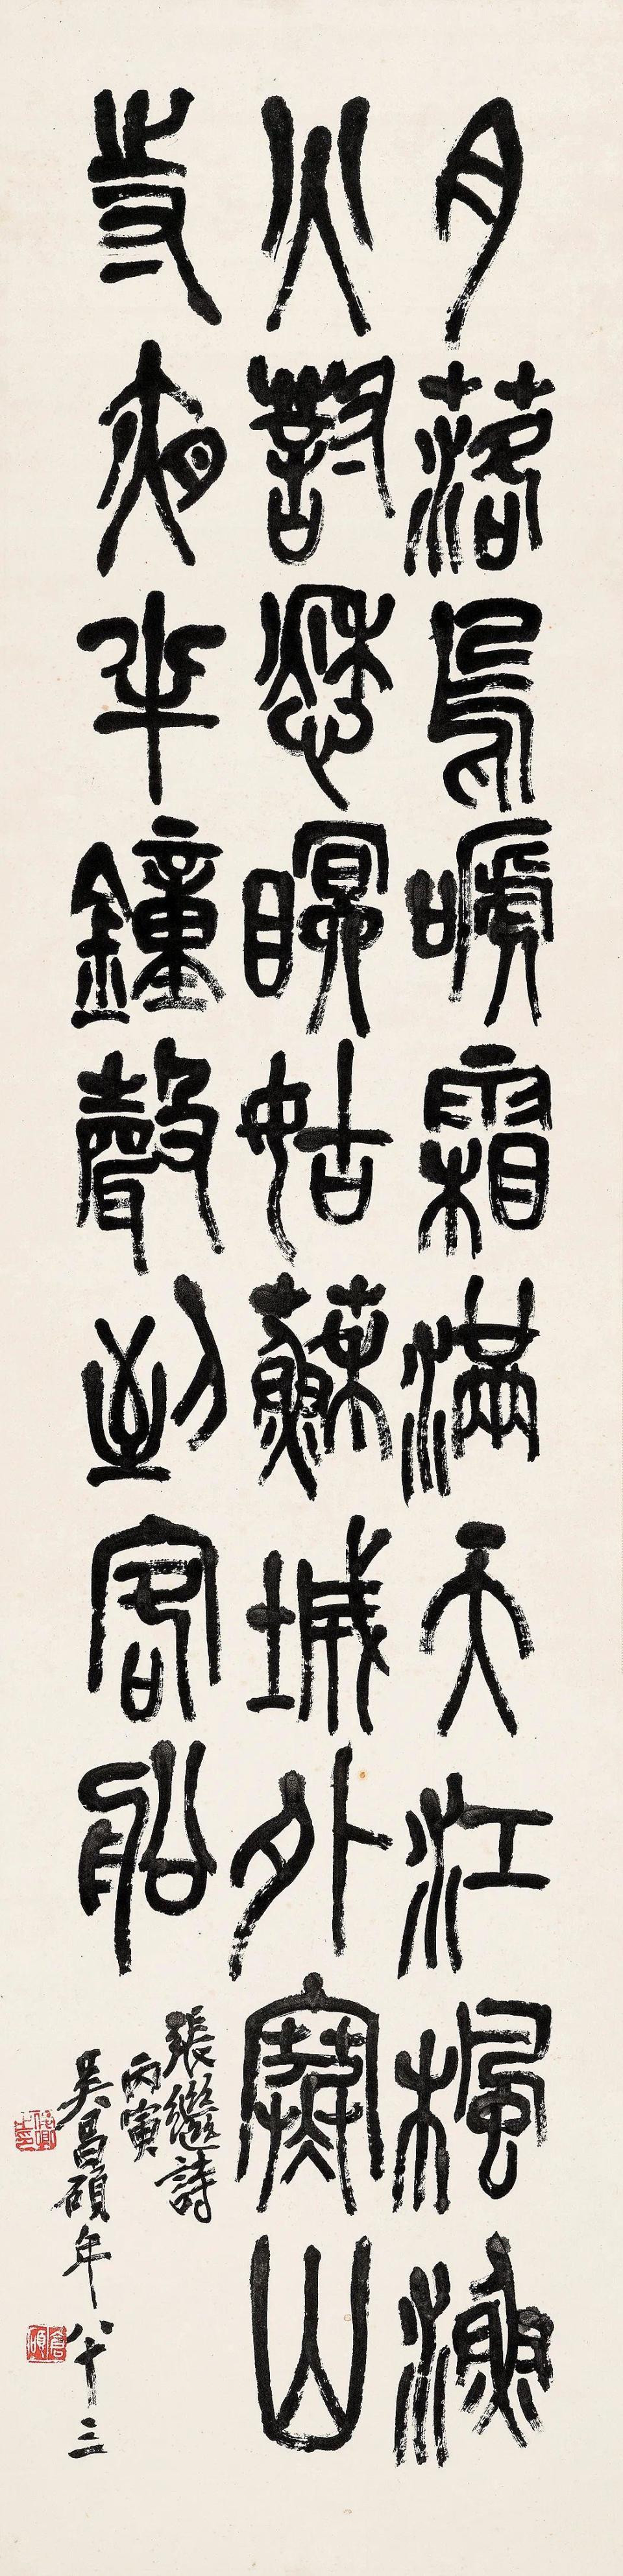 月落烏嗁霜滿天江楓漁
火對愁瞑姑蘇城外寒山
寺夜半鐘聲到客船
張繼詩
丙寅
吳昌碩年八十三
俊卿之印
倉碩